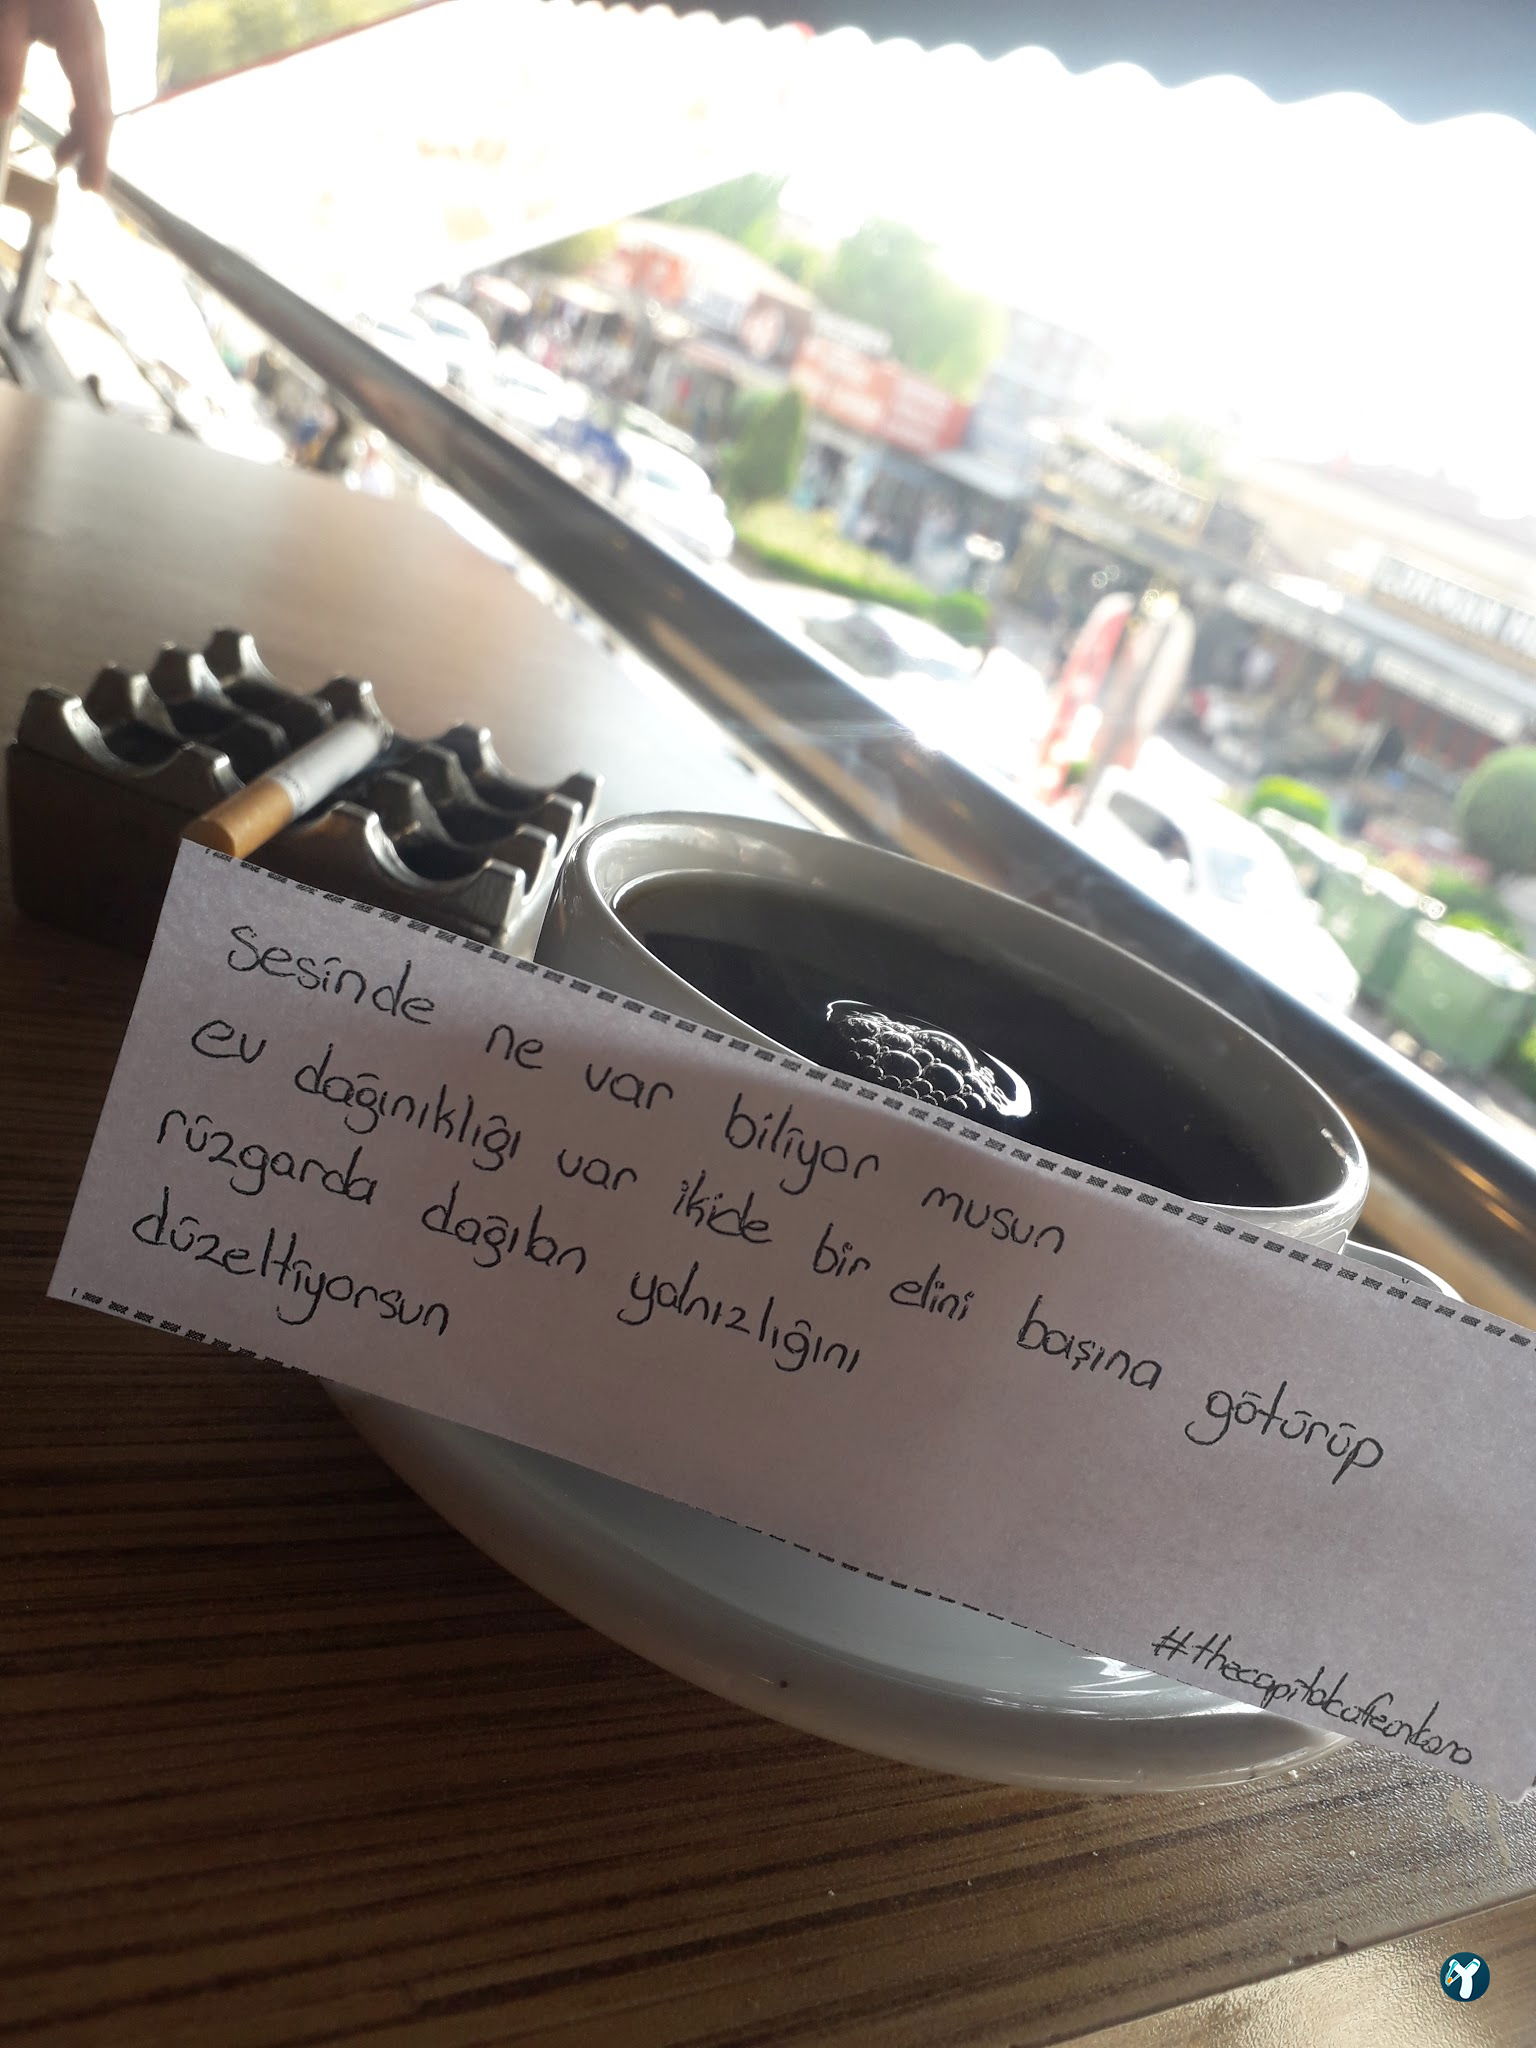 Sesinde ne var biliyor musun
ev dağınıklığı var ikide bir elini başına götürüp
rüzgarda dağılan yalnızlığını
düzeltiyorsun
#thecapitalcafeankara